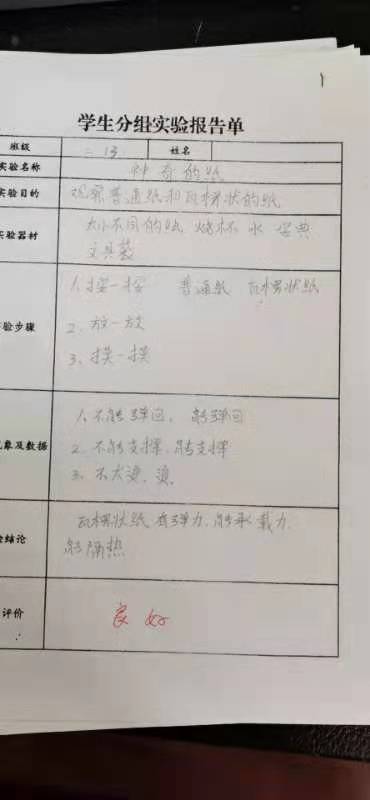 学生分组实验报告单
班级 二13 姓名
实验名称 神奇的纸
实验目的 观察普通纸和瓦楞状的纸
实验器材 大小不同的纸 烧杯 水 字典
文具袋
验步骤 1、按一按 普通纸 瓦楞状纸
2、放一放
3、摸一摸
象及数据 1、不能弹回，能弹回
2、不能支撑，能支撑
3、不太烫，烫
结论 瓦楞状纸 有弹力，能承载力，
能隔热
评价 良好